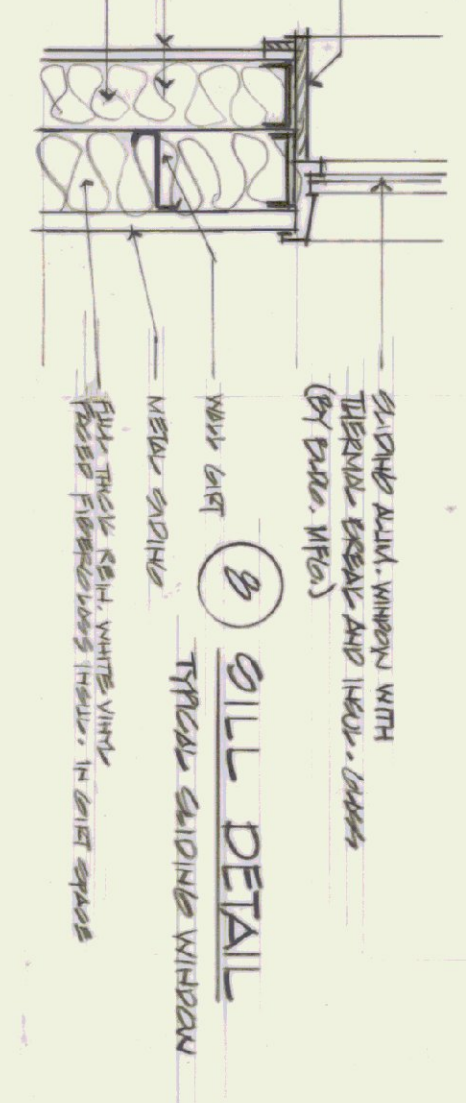 SLIDING ALUM. WINDOW WITH
THERMAL BREAK AND INSUL. GLASS
(BY BLDG. MFG.)
WALL GIRT
METAL SIDING
FULL THICK REIN. WHITE VINYL
FACED FIBERGLASS INSUL. IN GIRT SPACE
8
SILL DETAIL
TYPICAL SLIDING WINDOW